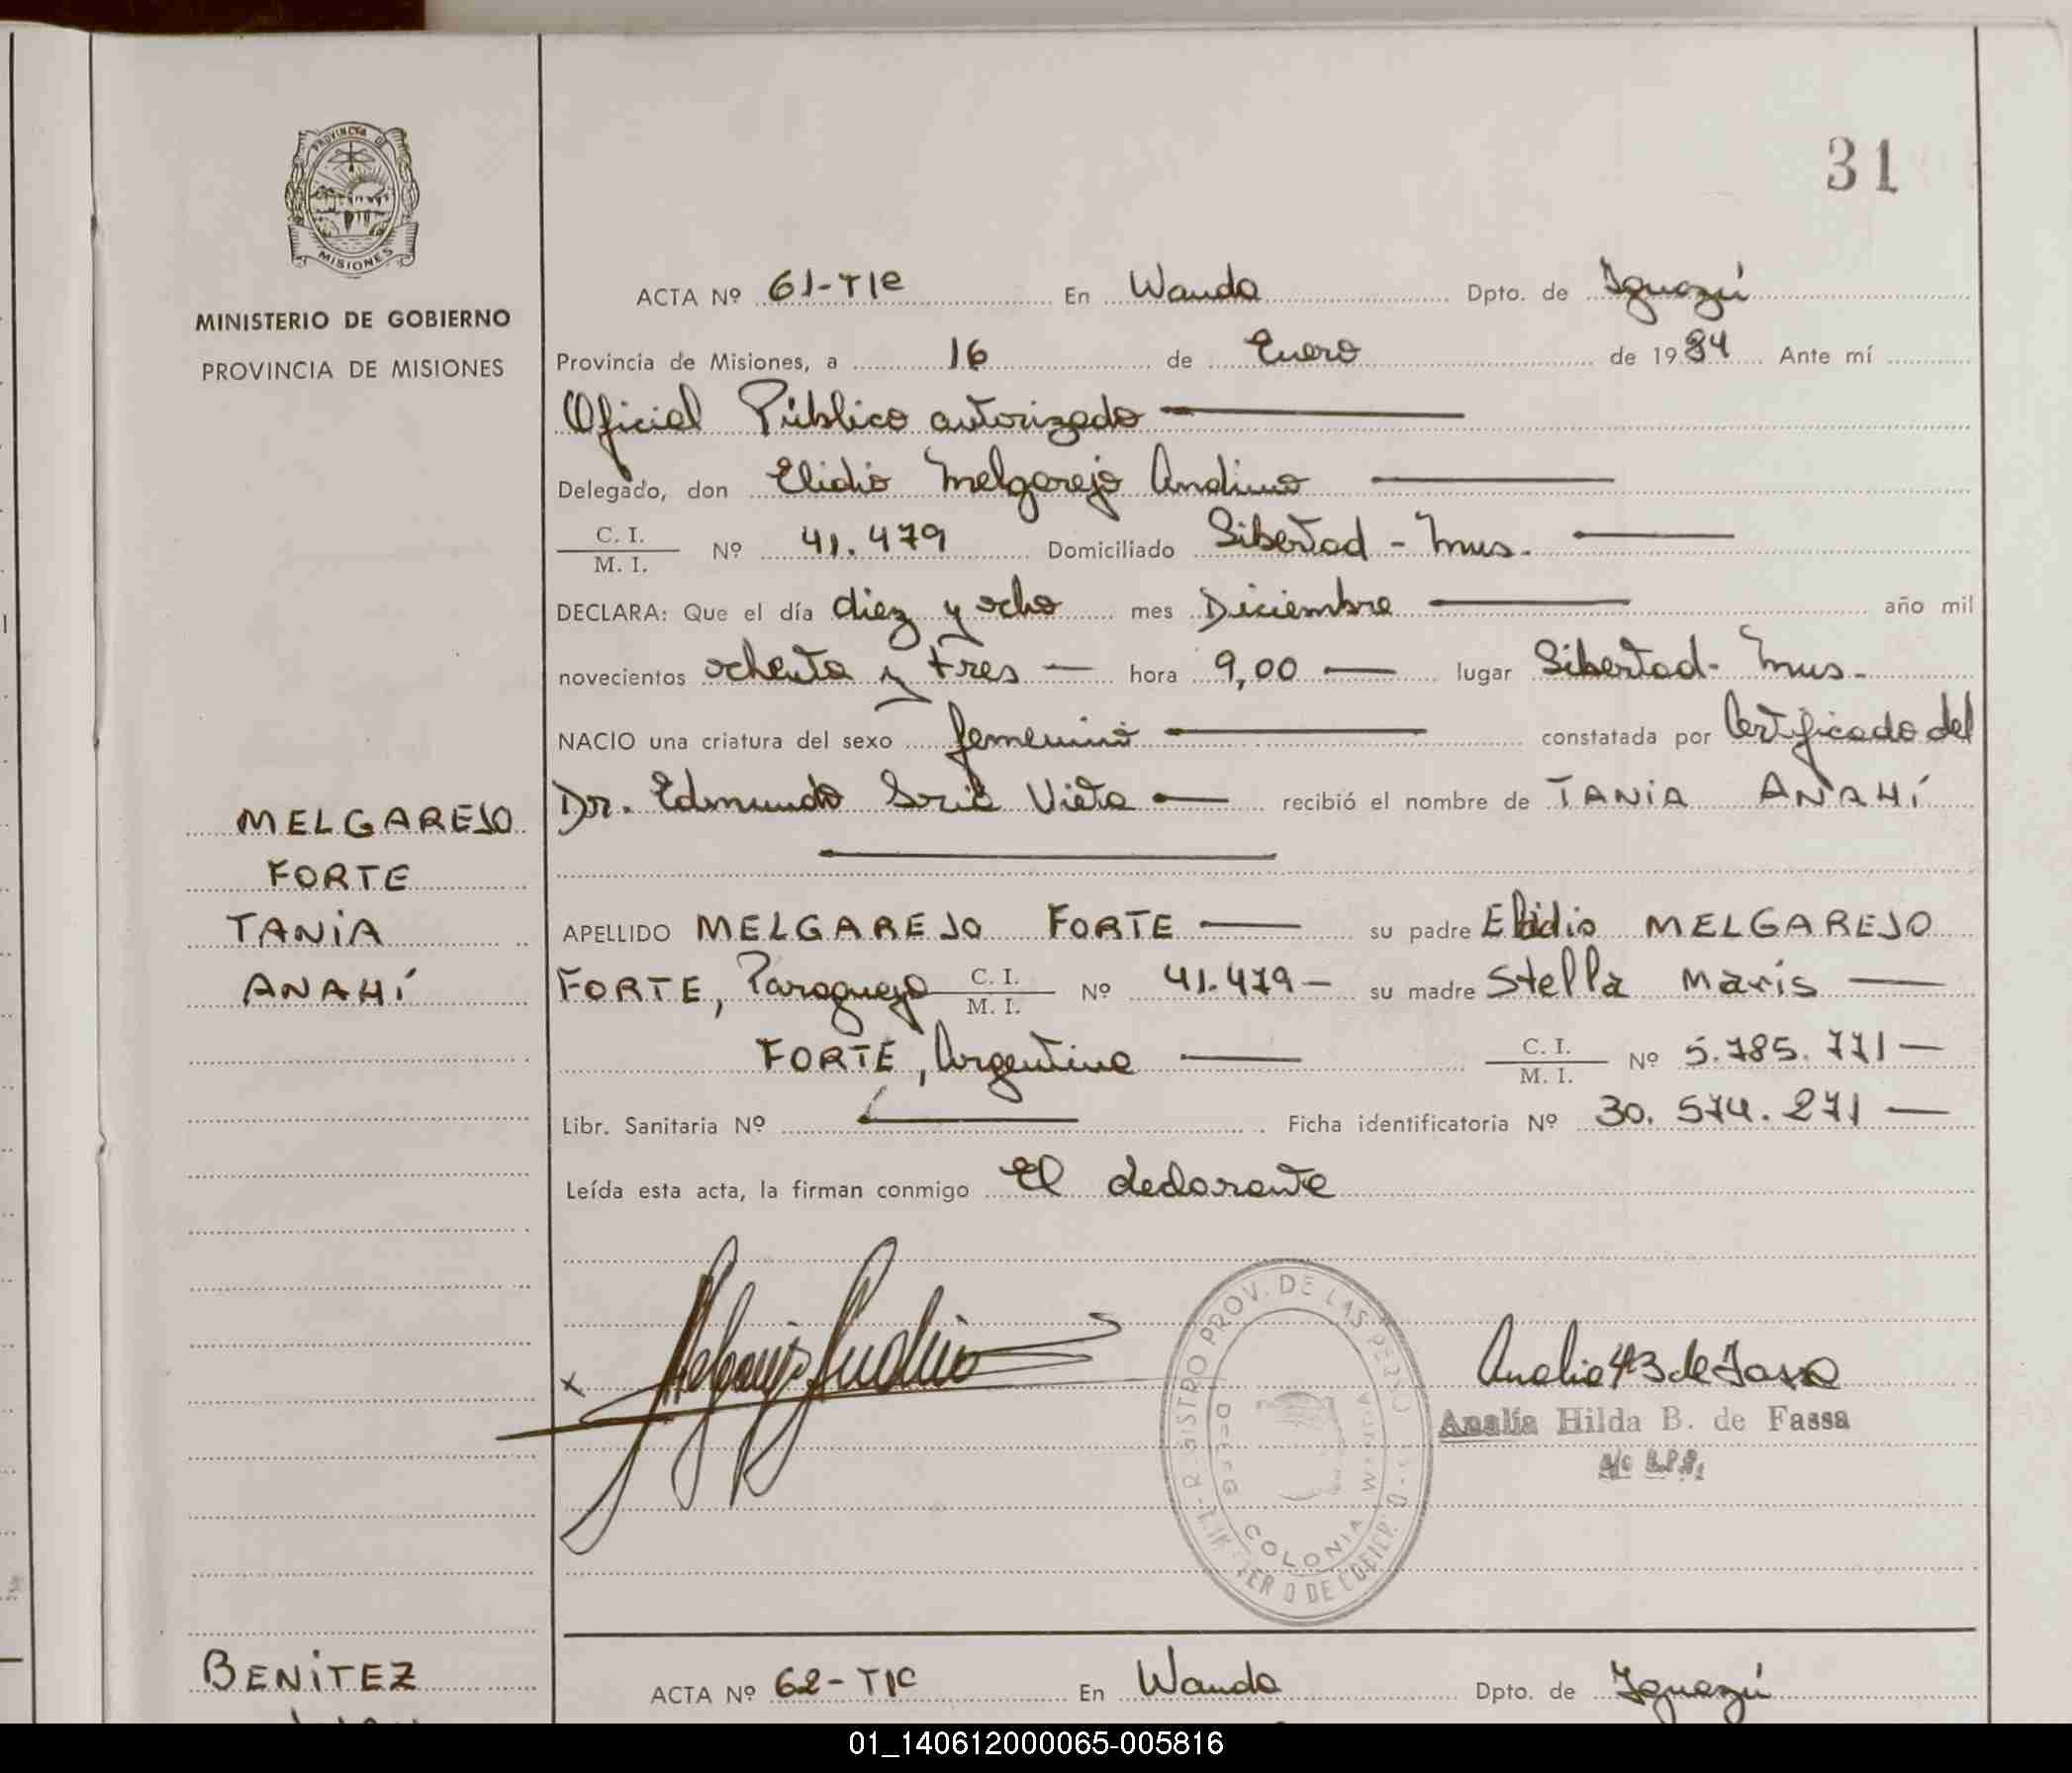 PROVINCIA DE
MISIONES
MINISTERIO DE GOBIERNO
PROVINCIA DE MISIONES
31
ACTA Nº 61-T1c En Wanda Dpto. de Iguazú
Provincia de Misiones, a 16 de Enero de 1984 Ante mí
Oficial Público autorizado
Delegado, don Elidio Melgarejo Andino
C. I. / M. I. Nº 41.479 Domiciliado Libertad - Mns.
DECLARA: Que el día diez y ocho mes Diciembre año mil
novecientos ochenta y tres hora 9,00 lugar Libertad - Mns.
NACIO una criatura del sexo femenino constatada por Certificado del
Dr. Edmundo Viera recibió el nombre de TANIA ANAHÍ
MELGAREJO
FORTE
TANIA
ANAHÍ
APELLIDO MELGAREJO FORTE su padre Elidio MELGAREJO
FORTE, Paraguayo C. I. / M. I. Nº 41.479 su madre Stella Maris
FORTE, Argentina C. I. / M. I. Nº 5.785.771
Libr. Sanitaria Nº Ficha identificatoria Nº 30.574.271
Leída esta acta, la firman conmigo El declarante
x Melgarejo Andino
REGISTRO PROV. DE LAS
COLONIA WANDA
Analia H B de Fassa
Analía Hilda B. de Fassa
BENÍTEZ
ACTA Nº 62-T1c En Wanda Dpto. de Iguazú
01_140612000065-005816